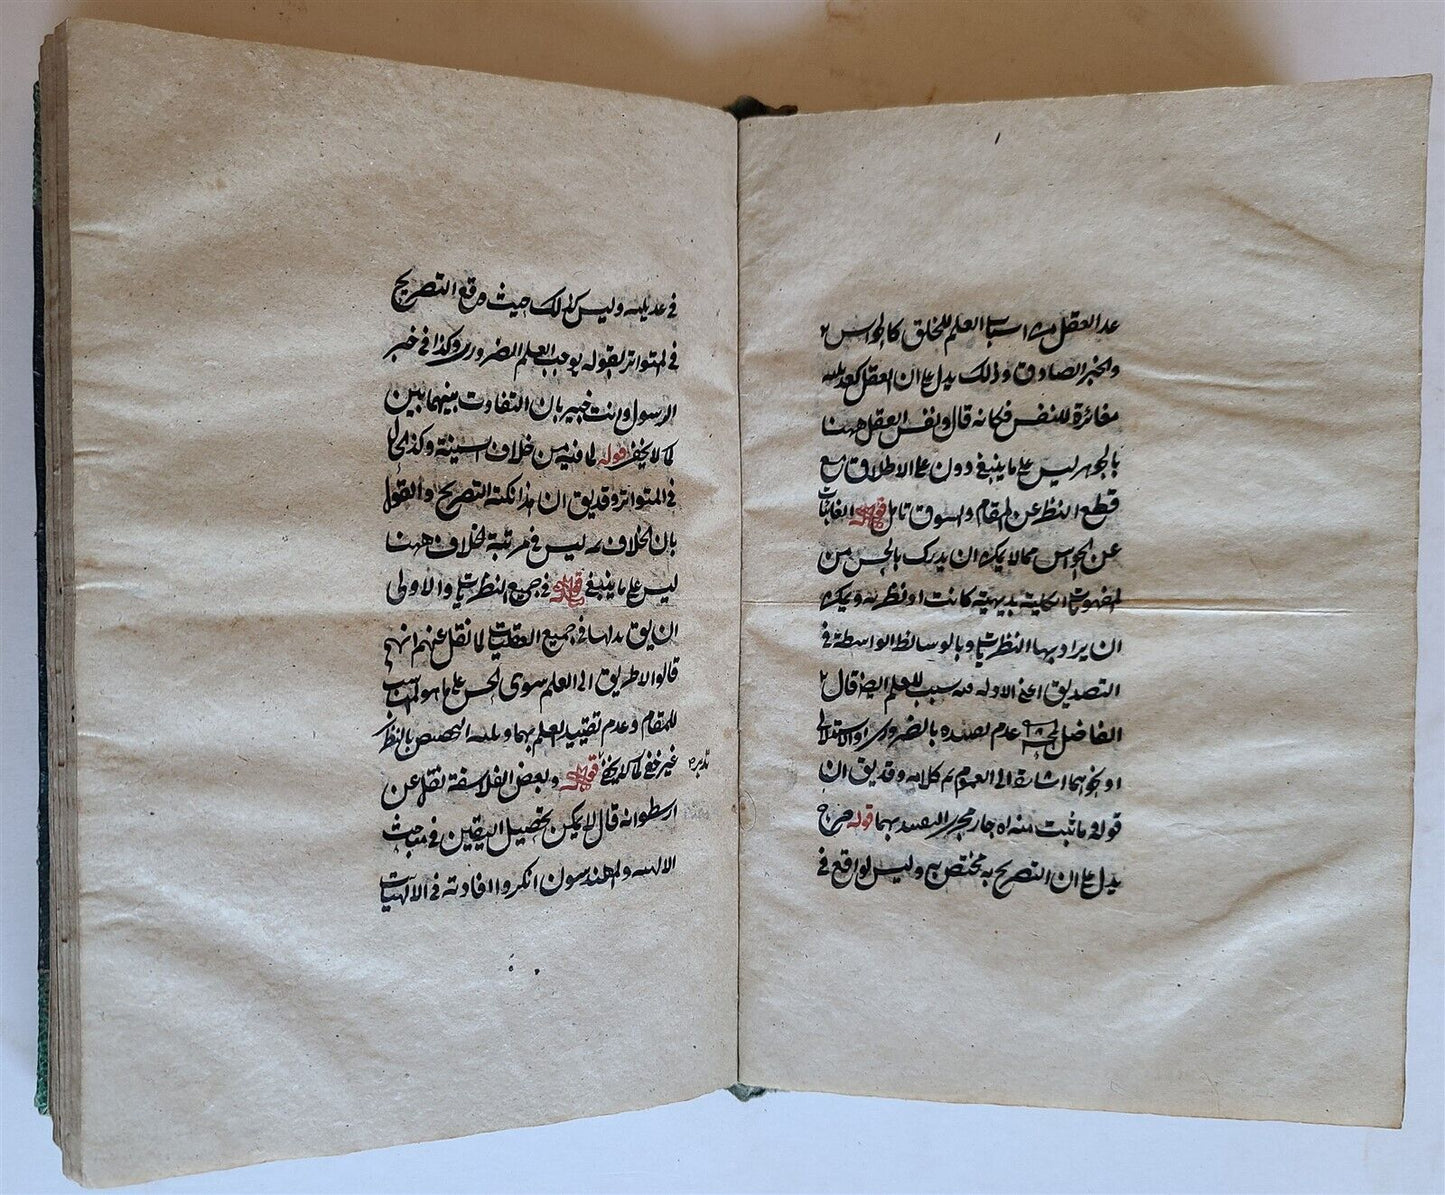 عد العقل من اسباب العلم للخلق كالحواس
والخبر الصادق وذلك يدل على ان العقل كعديليه
مغائرة للنفس فكانه قال ونفس العقل ههنا
بالجوهر ليس على ما ينبغى دون على الاطلاق مع
قطع النظر عن المقام والسوق تامل قوله الغائبات
عن الحواس مما لا يمكن ان يدرك بالحس من
المفهومات الكلية بديهية كانت او نظرية ويمكن
ان يراد بها النظريات وبالوسائط الواسطة فى
التصديق اعنى الاوله سبب للعلم ايضا قال
الفاضل عدم تصيده بالضرورى او الاستدلالى
او نحوهما اشارة الى العموم تم كلامه وقد يق ان
قوله وما ثبت منه اه جار مجرى بهما قوله صرح
يدل على ان التصريح به مختص به وليس لواقع فى
فى عديليه وليس كذلك حيث وقع التصريح
فى المتواتر لقوله يوجب العلم الضرورى وكذا فى خبر
الرسول وانت خبير بان التفاوت بينهما بين
كما لا يخفى قوله لما فيه من خلاف السمنية وكذا
فى المتواتر وقد يق ان هذا نكتة التصريح والقول
بان الخلاف ليس فى مرتبة الخلاف ههنا
ليس على ما ينبغى قوله فى جميع النظريات والاولى
ان يق بدلها فى جميع العقليات لما نقل عنهم انهم
قالوا لا طريق الى العلم سوى الحس على ما هو المناسب
للمقام وعدم تقييد العلم بهما بالنظر
غير خفى كما لا يخفى قوله وبعض الفلاسفة نقل عن
ارسطو انه قال لا يمكن تحصيل اليقين فى مباحث
الالهيه والمهندسون انكروا افادته فى الالهيات